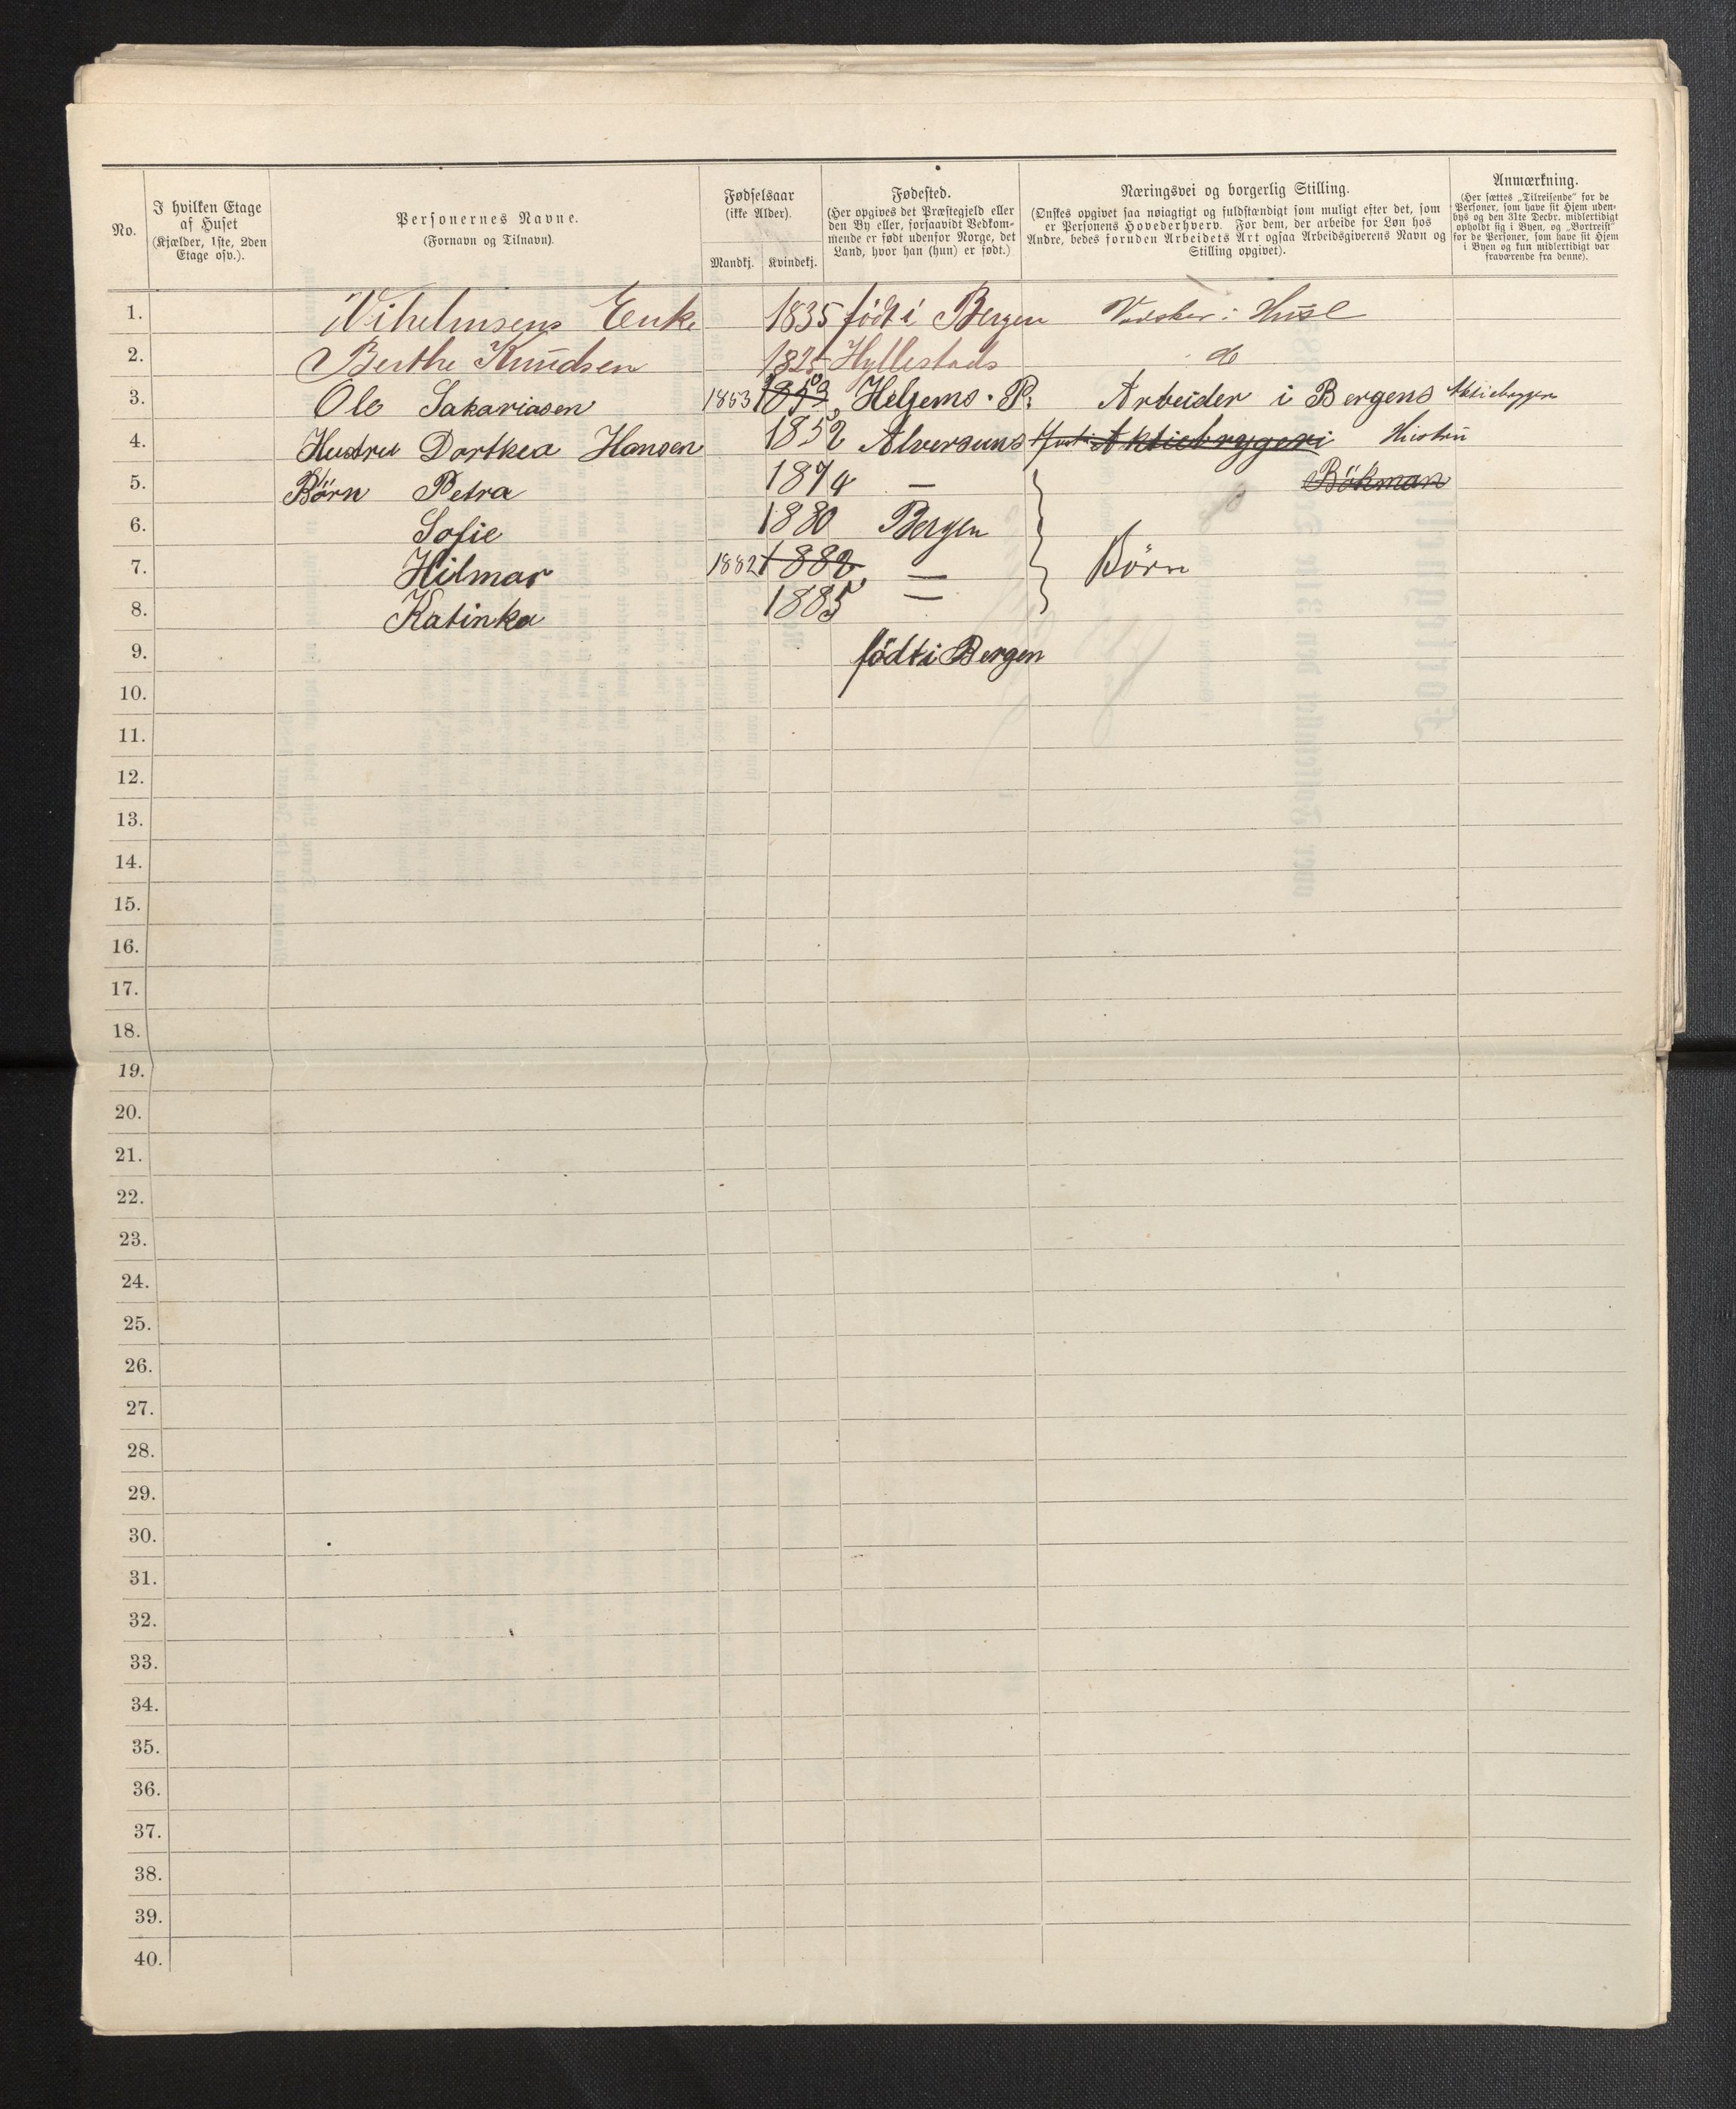 No.
I hvilken Etage af Huset (Kjælder, 1ste, 2den Etage osv.).
Personernes Navne. (Fornavn og Tilnavn).
Fødselsaar (ikke Alder).
Mandkj. Kvindekj.
Fødested. (Her opgives det Præstegjeld eller den By eller, forsaavidt Vedkommende er født udenfor Norge, det Land, hvor han (hun) er født.)
Næringsvei og borgerlig Stilling.
(Ønskes opgivet saa nøiagtigt og fuldstændigt som muligt efter det, som er Personens Hovederhverv. For dem, der arbeide for Løn hos Andre, bedes foruden Arbeidets Art ogsaa Arbeidsgiverens Navn og Stilling opgivet).
Anmærkning.
(Her sættes „Tilreisende" for de Personer, som have sit Hjem udenbys og den 31te Decbr. midlertidigt opholdt sig i Byen, og „Bortreist" for de Personer, som have sit Hjem i Byen og kun midlertidigt var fraværende fra denne).
1. Vihelmsens Enke 1835 født i Bergen i Huse
2. Berthe Knudsen 1825 Hyllestads do
3. Ole Sakariasen 1853 1853 Heljems. P. Arbeider i Bergens Aktiebryggeri
4. Hustru Dorthea Hansen 1852 Alversuns Aktiebryggeri Hustru
5. Børn Petra 1874 — Bökman
6. Sofie 1880 Bergen
7. Hilmar 1882 1882 — Børn
8. Katinka 1885 —
9. födt i Bergen
10.
11.
12.
13.
14.
15.
16.
17.
18.
19.
20.
21.
22.
23.
24.
25.
26.
27.
28.
29.
30.
31.
32.
33.
34.
35.
36.
37.
38.
39.
40.